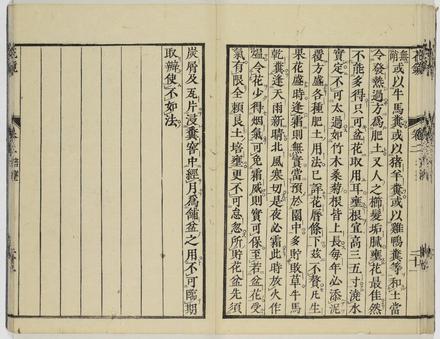 無
前
或以牛馬糞或以猪羊糞或以雞鴨糞等和土當
令發熱過方爲肥土又人之櫛髮垢膩壅花最佳然
不能多得只可盆花取用耳壅根宜高三五寸澆水
實定不可太過如竹木桑菊根皆上長每年必添泥
覆方盛各種肥土用法已詳花曆條下茲不贅凡生
果花盛時逢霜則無實當預於園中多貯敗草牛馬
乾糞逢天雨新晴北風寒切是夜必霜此時放火作
煴令花少得烟氣可免霜威則實可保至若盆花受
氣有限全賴良土培壅更不可怠忽所貯花盆先須
炭屑及瓦片浸糞窖中經月爲鋪盆之用不可臨期
取辦使不如法
花鏡
卷二